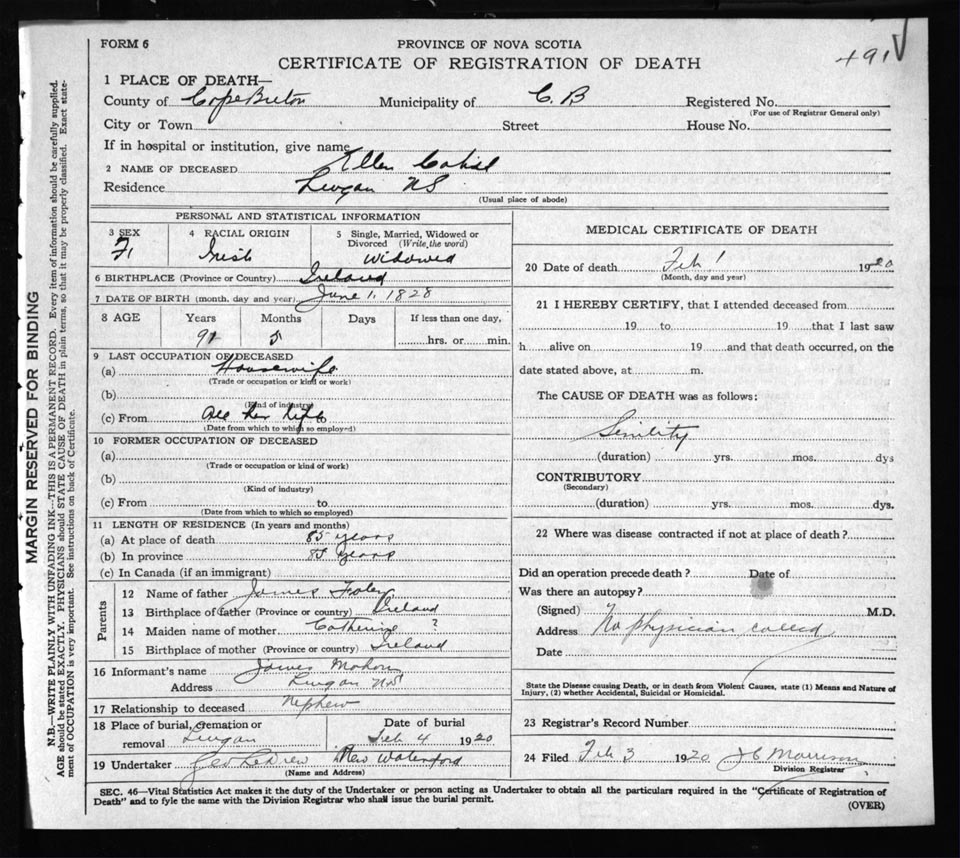 FORM 6
PROVINCE OF NOVA SCOTIA
CERTIFICATE OF REGISTRATION OF DEATH
491
1 PLACE OF DEATH—
County of Cape Breton Municipality of C. B Registered No.
(For use of Registrar General only)
City or Town Street House No.
If in hospital or institution, give name
2 NAME OF DECEASED Ellen
Residence Lingan NS
(Usual place of abode)
PERSONAL AND STATISTICAL INFORMATION
3 SEX 4 RACIAL ORIGIN 5 Single, Married, Widowed or Divorced (Write the word)
F. Irish Widowed
6 BIRTHPLACE (Province or Country) Ireland
7 DATE OF BIRTH (month, day and year) June 1. 1828
8 AGE Years Months Days If less than one day,
91 5 hrs. or min.
9 LAST OCCUPATION OF DECEASED
(a) Housewife
(Trade or occupation or kind or work)
(b)
(Kind of industry)
(c) From All her life to
(Date from which to which so employed)
10 FORMER OCCUPATION OF DECEASED
(a)
(Trade or occupation or kind of work)
(b)
(Kind of industry)
(c) From to
(Date from which to which so employed)
11 LENGTH OF RESIDENCE (In years and months)
(a) At place of death 85 years
(b) In province 85 years
(c) In Canada (if an immigrant)
Parents
12 Name of father James Foley
13 Birthplace of father (Province or country) Ireland
14 Maiden name of mother Catherine ?
15 Birthplace of mother (Province or country) Ireland
16 Informant's name James Mahon
Address Lingan NS
17 Relationship to deceased Nephew
18 Place of burial, cremation or removal Lingan Date of burial Feb 4 1920
19 Undertaker Geo LeDrew New Waterford
(Name and Address)
MEDICAL CERTIFICATE OF DEATH
20 Date of death Feb 1 1920
(Month, day and year)
21 I HEREBY CERTIFY, that I attended deceased from
19 to 19 that I last saw
h alive on 19 and that death occurred, on the
date stated above, at m.
The CAUSE OF DEATH was as follows:
Senility
(duration) yrs. mos. dys
CONTRIBUTORY
(Secondary)
(duration) yrs. mos. dys.
22 Where was disease contracted if not at place of death?
Did an operation precede death? Date of
Was there an autopsy?
(Signed) M.D.
Address No physician called
Date
State the Disease causing Death, or in death from Violent Causes, state (1) Means and Nature of
Injury, (2) whether Accidental, Suicidal or Homicidal.
23 Registrar's Record Number
24 Filed Feb 3 1920 J C Morrison
Division Registrar
SEC. 46—Vital Statistics Act makes it the duty of the Undertaker or person acting as Undertaker to obtain all the particulars required in the "Certificate of Registration of
Death" and to fyle the same with the Division Registrar who shall issue the burial permit.
(OVER)
MARGIN RESERVED FOR BINDING
N.B.—WRITE PLAINLY WITH UNFADING INK—THIS IS A PERMANENT RECORD. Every item of information should be carefully supplied.
AGE should be stated EXACTLY. PHYSICIANS should STATE CAUSE OF DEATH in plain terms, so that it may be properly classified. Exact state-
ment of OCCUPATION is very important. See instructions on back of Certificate.